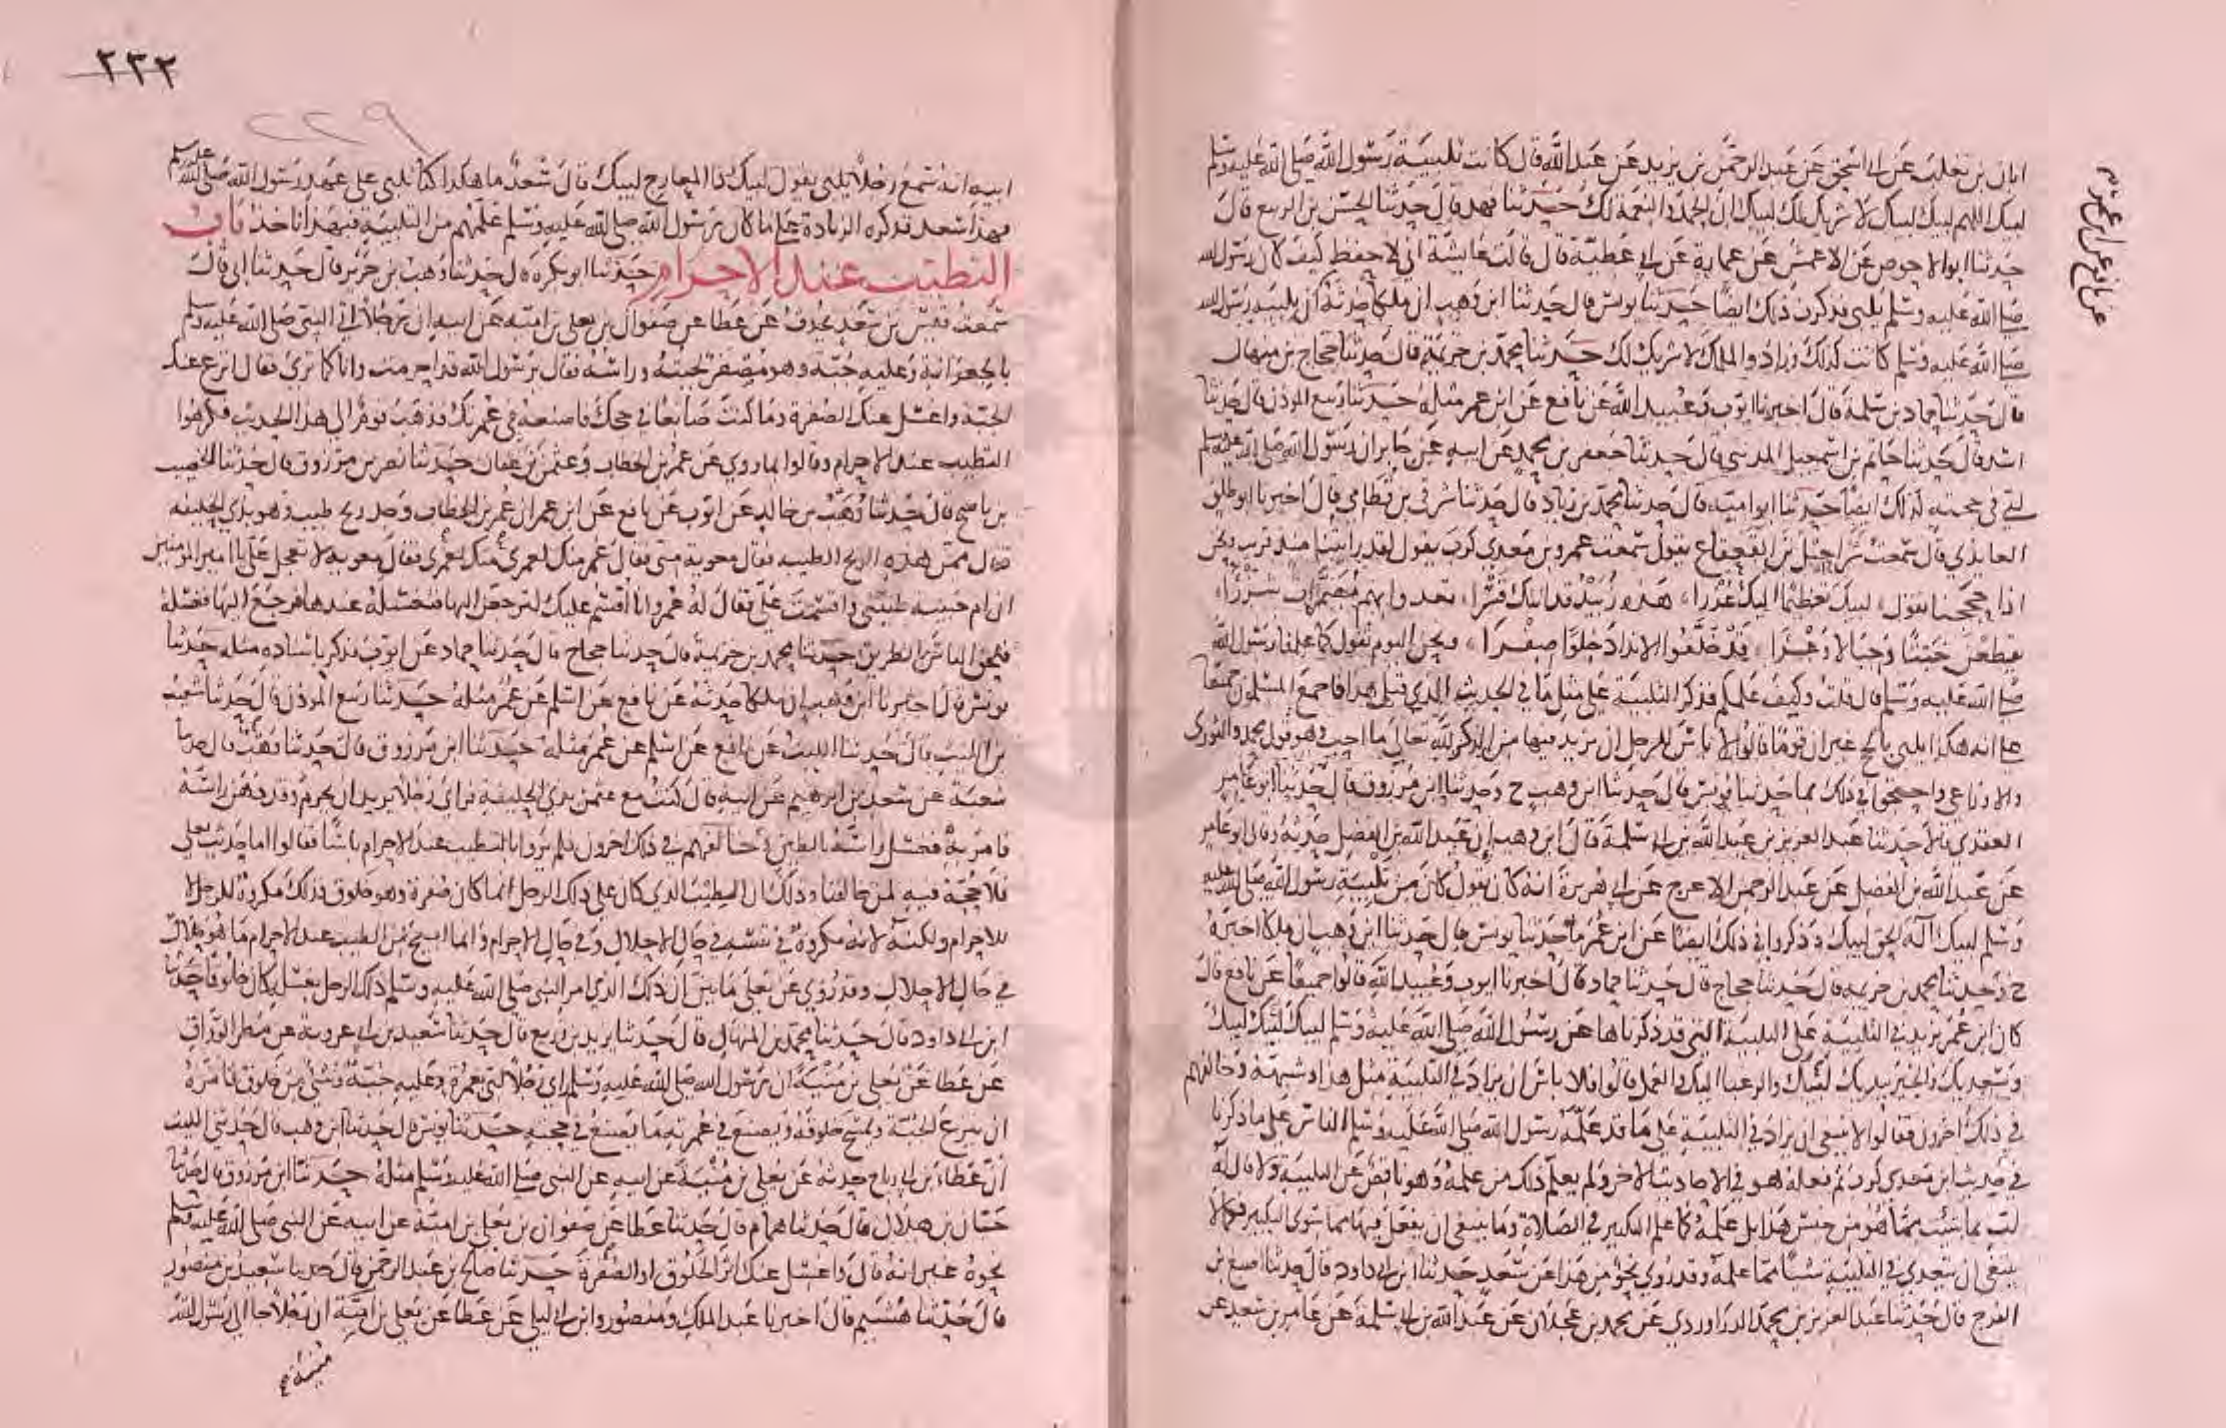 ابان بن تغلب عن ابي اسحق عن عبد الرحمن بن يزيد عن عبد الله قال كانت تلبية رسول الله صلى الله عليه وسلم
لبيك اللهم لبيك لبيك لا شريك لك لبيك ان الحمد والنعمة لك حدثنا فهد قال حدثنا الحسن بن الربيع قال
حدثنا ابو الاحوص عن الاعمش عن عمارة عن ابي عطية قال قالت عايشة اني لاحفظ كيف كان رسول الله
صلى الله عليه وسلم يلبي فذكرت ذلك ايضا حدثنا يونس قال حدثنا ابن وهب ان ملكا حدثه ان تلبية رسول الله
صلى الله عليه وسلم كانت كذلك وزاد والملك لا شريك لك حدثنا محمد بن خزيمة قال حدثنا حجاج بن منهال
قال حدثنا حماد بن سلمة قال اخبرنا ايوب وعبيد الله عن نافع عن ابن عمر مثله حدثنا ربيع الموذن قال حدثنا
اسد قال حدثنا حاتم بن اسمعيل المدني قال حدثنا جعفر بن محمد عن ابيه عن جابر ان رسول الله صلى الله عليه وسلم
لبى في حجته كذلك ايضا حدثنا ابو امية قال حدثنا محمد بن زياد قال حدثنا شرقي بن قطامي قال اخبرنا ابو طلق
العايذي قال سمعت شراحيل بن القعقاع يقول سمعت عمرو بن معدي كرب يقول لقد رايتنا منذ قريب ونحن
اذا حججنا نقول لبيك تعظيما اليك عذرا هذه زبيد قد اتتك قسرا تعدوا بهم مضمرات شزرا
يقطعن خبتا وجبالا وعرا قد خلفوا الانداد خلوا صفرا ونحن اليوم نقول كما علمنا رسول الله
صلى الله عليه وسلم قال قلت وكيف علمكم فذكر التلبية على مثل ما في الحديث الذي قبل هذا فاجمع المسلمون جميعا
على انه هكذا يلبى بالحج غير ان قوما قالوا لا باس للرجل ان يزيد فيها من الذكر لله تعالى ما احب وهو قول محمد والثوري
والاوزاعي واحتجوا في ذلك بما حدثنا يونس قال حدثنا ابن وهب ح وحدثنا ابن مرزوق قال حدثنا ابو عامر
العقدي قالا حدثنا عبد العزيز بن عبد الله بن ابي سلمة قال ابن وهب ان عبد الله بن الفضل حدثه وقال ابو عامر
عن عبد الله بن الفضل عن عبد الرحمن الاعرج عن ابي هريرة انه كان يقول كان من تلبية رسول الله صلى الله عليه
وسلم لبيك اله الحق لبيك وذكروا في ذلك ايضا عن ابن عمر ما حدثنا يونس قال حدثنا ابن وهب ان ملكا اخبره
ح وحدثنا محمد بن خزيمة قال حدثنا حجاج قال حدثنا حماد قال اخبرنا ايوب وعبيد الله قالوا جميعا عن نافع قال
كان ابن عمر يزيد في التلبية على التلبية التي قد ذكرناها عن رسول الله صلى الله عليه وسلم لبيك لبيك لبيك
وسعديك والخير بيديك لبيك والرغبا اليك والعمل قالوا فلا باس ان يزاد في التلبية مثل هذا وشبهه وخالفهم
في ذلك اخرون فقالوا لا ينبغي ان يزاد في التلبية على ما قد علمه رسول الله صلى الله عليه وسلم الناس على ما ذكرنا
في حديث ابن معدي كرب ثم فعله هو في الاحاديث الاخر ولم يعلم ذلك من علمه وهو ناقص عن التلبية ولا قال له
لب بما شئت مما هو من جنس هذا بل علمه كما علم التكبير في الصلاة وما ينبغي ان يفعل فيها مما سوى التكبير فكما لا
ينبغي ان يتعدى في التلبية شيئا مما علمه وقد روي نحو من هذا عن سعد حدثنا ابن ابي داود قال حدثنا اصبغ بن
الفرج قال حدثنا عبد العزيز بن محمد الدراوردي عن محمد بن عجلان عن عبد الله بن ابي سلمة عن عامر بن سعد عن
٢٣٢
٢٢٩
ابيه انه سمع رجلا يلبي يقول لبيك ذا المعارج لبيك قال سعد ما هكذا كنا نلبي على عهد رسول الله صلى الله عليه وسلم
فهذا سعد قد كره الزيادة على ما كان رسول الله صلى الله عليه وسلم علمهم من التلبية فبهذا ناخذ باب
التطيب عند الاحرام حدثنا ابو بكرة قال حدثنا وهب بن جرير قال حدثنا ابي قال
سمعت قيس بن سعد يحدث عن عطا عن صفوان بن يعلى بن امية عن ابيه ان رجلا اتى النبي صلى الله عليه وسلم
بالجعرانة وعليه جبة وهو مصفر لحيته وراسه فقال رسول الله قد احرمت وانا كما ترى فقال انزع عنك
الجبة واغسل عنك الصفرة وما كنت صانعا في حجك فاصنعه في عمرتك فذهب قوم الى هذا الحديث فكرهوا
التطيب عند الاحرام وقالوا بما روي عن عمر بن الخطاب وعثمن بن عفان حدثنا نصر بن مرزوق قال حدثنا الخصيب
بن ناصح قال حدثنا وهيب بن خالد عن ايوب عن نافع عن ابن عمر ان عمر بن الخطاب وجد ريح طيب وهو بذي الحليفة
فقال ممن هذه الريح الطيبه فقال معوية مني فقال عمر منك لعمري منك لعمري فقال معوية لا تعجل علي يا امير المومنين
ان ام حبيبه طيبتني واقسمت علي فقال له عمر وانا اقسم عليك لترجعن اليها فتغسله عندها فرجع اليها فغسله
فلحق الناس بالطريق حدثنا محمد بن خزيمة قال حدثنا حجاج قال حدثنا حماد عن ايوب فذكر باسناده مثله حدثنا
يونس قال اخبرنا ابن وهب ان ملكا حدثه عن نافع عن اسلم عن عمر مثله حدثنا ربيع الموذن قال حدثنا شعيب
بن الليث قال حدثنا الليث عن نافع عن اسلم عن عمر مثله حدثنا ابن مرزوق قال حدثنا وهب قال حدثنا
شعبة عن سعد بن ابرهيم عن ابيه قال كنت مع عثمن بذي الحليفة فراى رجلا يريد ان يحرم وقد دهن راسه
فامر به فغسل راسه بالطين وخالفهم في ذلك اخرون فلم يروا بالتطيب عند الاحرام باسا فقالوا اما حديث يعلى
فلا حجة فيه لمن خالفنا وذلك ان الطيب الذي كان على ذلك الرجل انما كان صفرة وهو خلوق فذلك مكروه للرجل لا
للاحرام ولكنه لانه مكروه في نفسه في حال الاحلال وفي حال الاحرام وانما ابيح من الطيب عند الاحرام ما هو حلال
في حال الاحلال وقد روي عن يعلى ما بين ان ذلك الذي امر النبي صلى الله عليه وسلم ذلك الرجل بغسله كان خلوقا حدثنا
ابن ابي داود قال حدثنا محمد بن المنهال قال حدثنا يزيد بن زريع قال حدثنا سعيد بن ابي عروبة عن مطر الوراق
عن عطا عن يعلى بن منية ان رسول الله صلى الله عليه وسلم راى رجلا لبى بعمرة وعليه جبة وشي من خلوق فامره
ان ينزع الجبة ويمسح خلوقه ويصنع في عمرته ما يصنع في حجته حدثنا يونس قال حدثنا ابن وهب قال حدثني الليث
ان عطاء بن ابي رباح حدثه عن يعلى بن منية عن ابيه عن النبي صلى الله عليه وسلم مثله حدثنا ابن مرزوق قال حدثنا
حبان بن هلال قال حدثنا همام قال حدثنا عطا عن صفوان بن يعلى بن امية عن ابيه عن النبي صلى الله عليه وسلم
نحوه غير انه قال واغسل عنك اثر الخلوق او الصفرة حدثنا صالح بن عبد الرحمن قال حدثنا سعيد بن منصور
قال حدثنا هشيم قال اخبرنا عبد الملك ومنصور وابن ابي ليلى عن عطا عن يعلى بن امية ان رجلا جا الى رسول الله